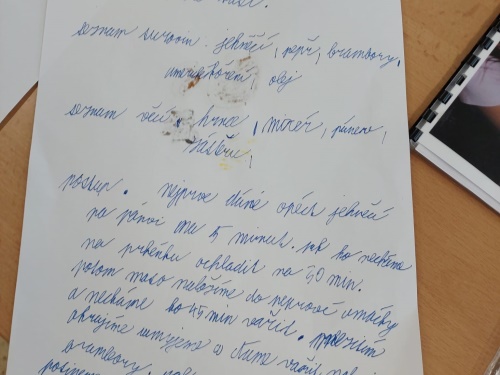 seznam surovin. jehněčí, pepř, brambory,
koření, olej
seznam věcí. hrnec, mixér, pánev,
zástěru,
postup. nejprve dáme opéct jehněčí
na pánvi na 5 minut. pak ho necháme
na prkénku ochladit na 30 min.
potom maso naložíme do pepřové omáčky
a necháme ho 45 min vařit. mezitím
okrájíme umyjeme a dáme vařit
brambory,